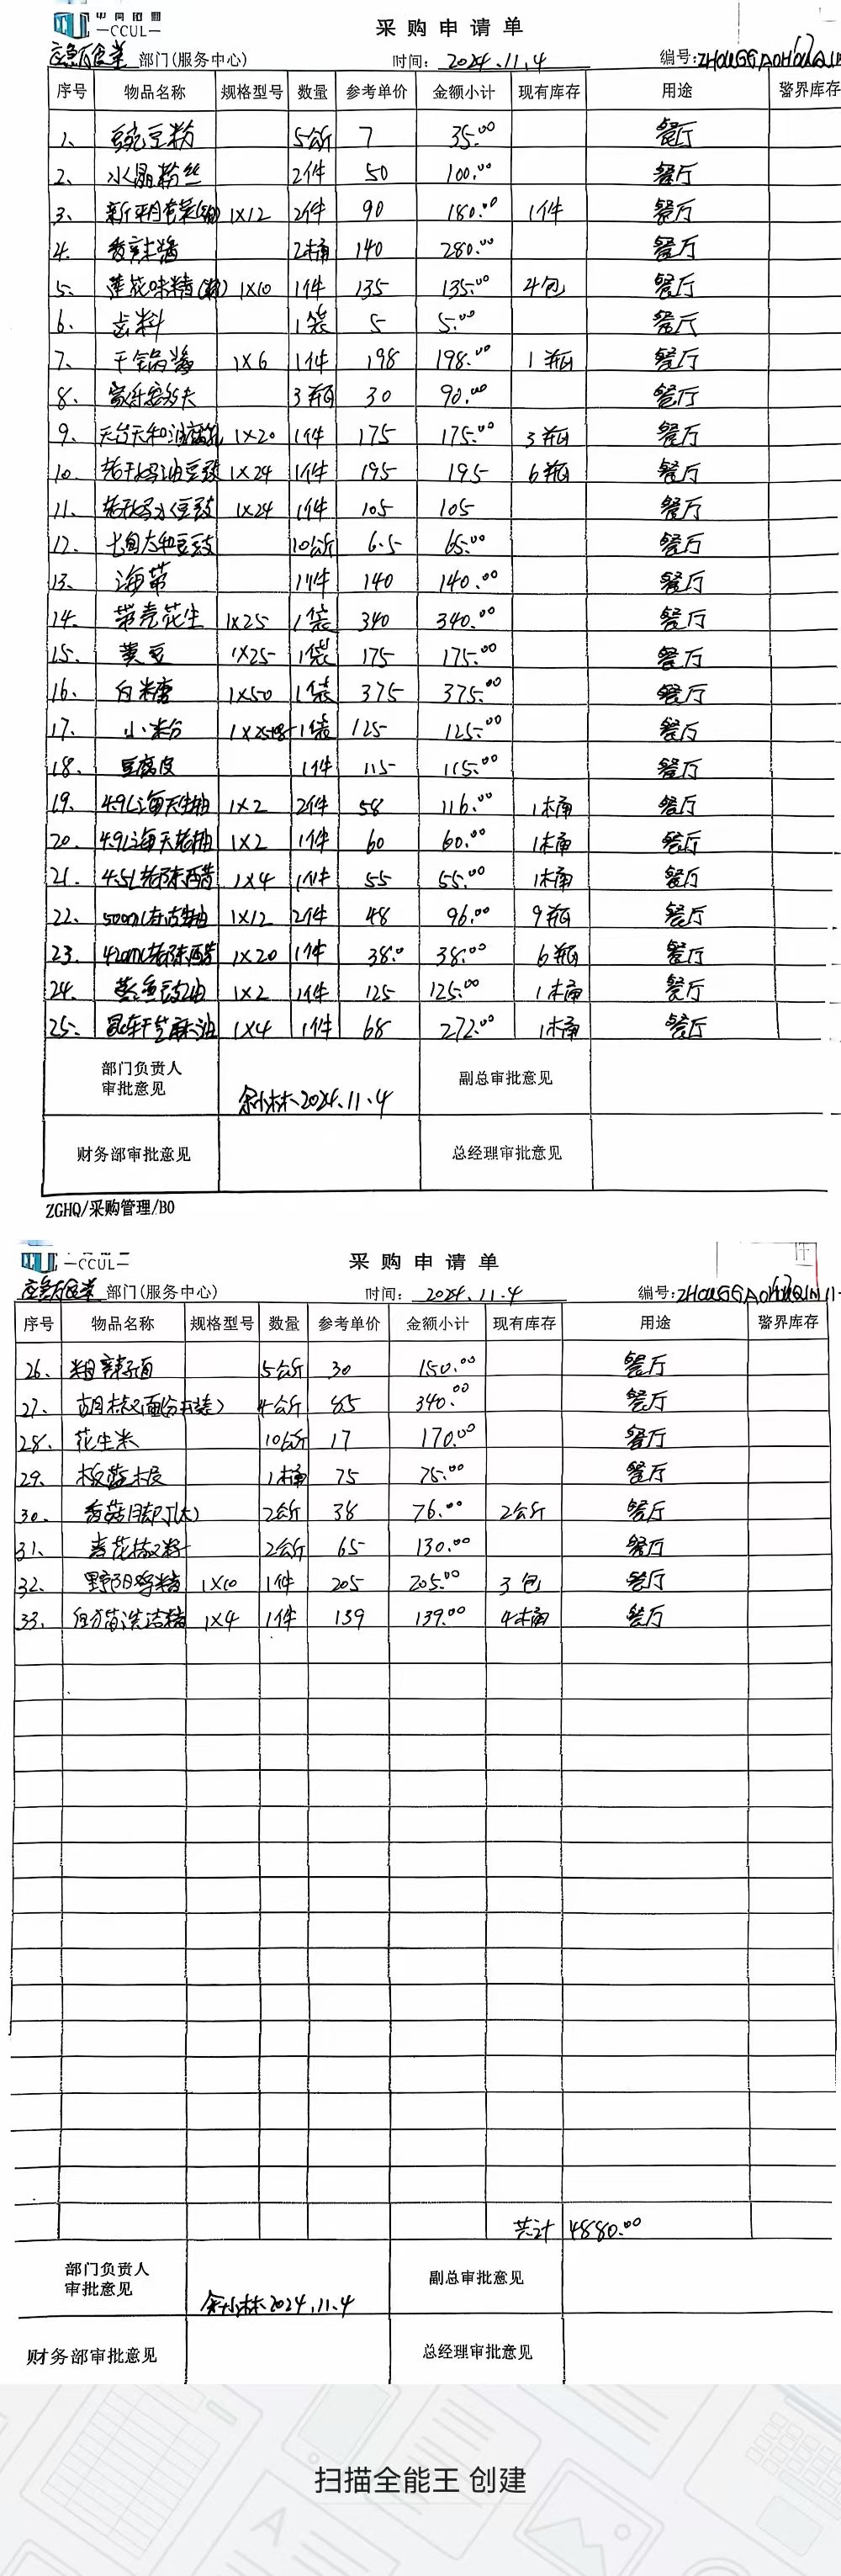 CCUL
采购申请单
应急厅食堂 部门(服务中心) 时间: 2024.11.4 编号:
序号 物品名称 规格型号 数量 参考单价 金额小计 现有库存 用途 警界库存
1、 豌豆粉 5公斤 7 35.00 餐厅
2、 水晶粉丝 2件 50 100.00 餐厅
3、 1X12 2件 90 180.00 1件 餐厅
4、 香辣酱 2桶 140 280.00 餐厅
5、 莲花味精 1X10 1件 135 135.00 4包 餐厅
6、 卤料 1袋 5 5.00 餐厅
7、 干锅酱 1X6 1件 198 198.00 1瓶 餐厅
8、 3瓶 30 90.00 餐厅
9、 1X20 1件 175 175.00 3瓶 餐厅
10、 老干妈油豆豉 1X24 1件 195 195 6瓶 餐厅
11、 老干妈水豆豉 1X24 1件 105 105 餐厅
12、 10公斤 6.5 65.00 餐厅
13、 海带 1件 140 140.00 餐厅
14、 带壳花生 1X25 1袋 340 340.00 餐厅
15、 黄豆 1X25 1袋 175 175.00 餐厅
16、 白糖 1X50 1袋 375 375.00 餐厅
17、 小米 1袋 125 125.00 餐厅
18、 豆腐皮 1件 115 115.00 餐厅
19、 4.9L海天生抽 1X2 2件 58 116.00 1桶 餐厅
20、 4.9L海天老抽 1X2 1件 60 60.00 1桶 餐厅
21、 4.5L老陈醋 1X4 1件 55 55.00 1桶 餐厅
22、 500ml东古生抽 1X12 2件 48 96.00 9瓶 餐厅
23、 420ml老陈醋 1X20 1件 38.0 38.00 6瓶 餐厅
24、 蒸鱼豉油 1X2 1件 125 125.00 1桶 餐厅
25、 芝麻油 1X4 1件 68 272.00 1桶 餐厅
部门负责人
审批意见
余小林 2024.11.4
副总审批意见
财务部审批意见 总经理审批意见
ZGHQ/采购管理/B0
CCUL
采购申请单
应急厅食堂 部门(服务中心) 时间: 2024.11.4 编号:
序号 物品名称 规格型号 数量 参考单价 金额小计 现有库存 用途 警界库存
26、 粗辣子面 5公斤 30 150.00 餐厅
27、 胡椒面(分装) 4公斤 85 340.00 餐厅
28、 花生米 10公斤 17 170.00 餐厅
29、 板蓝根 1桶 75 75.00 餐厅
30、 香菇脚丁(大) 2公斤 38 76.00 2公斤 餐厅
31、 青花椒籽 2公斤 65 130.00 餐厅
32、 鸡精 1X10 1件 205 205.00 3包 餐厅
33、 洗洁精 1X4 1件 139 139.00 4桶 餐厅
共计 4880.00
部门负责人
审批意见
余小林 2024.11.4
副总审批意见
财务部审批意见 总经理审批意见
扫描全能王 创建